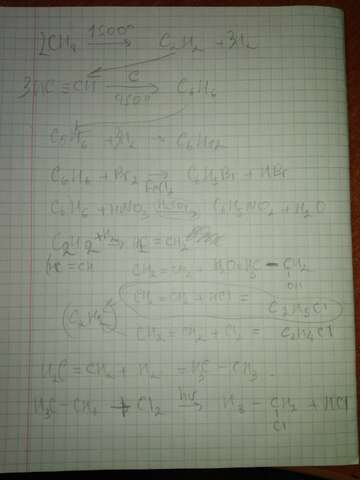 2CH4 1500° → C2H2 + 3H2
3HC ≡ CH C → 450° C6H6
C6H6 + 3H2 → C6H12
C6H6 + Br2 → FeCl3 C6H5Br + HBr
C6H6 + HNO3 H2SO4 → C6H5NO2 + H2O
C2H2 +H2 → = CH2
HC ≡ CH CH2 = CH2 - CH2
OH
CH2 = CH2 + HCl = C2H5Cl
C2H2 CH2 = CH2 + Cl2 = C2H4Cl
H2C = CH2 + H2 = H3C - CH3
H3C - CH3 + Cl2 hν → H3 - CH2 + HCl
Cl